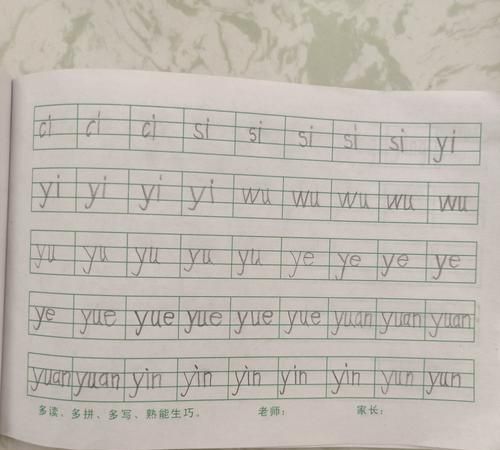 ci ci ci si si si si si yi
yi yi yi yi wu wu wu wu wu
yu yu yu yu yu ye ye ye ye
ye yue yue yue yue yue yuan yuan yuan
yuan yuan yin yin yin yin yin yun yun
多读、多拼、多写、熟能生巧。 老师： 家长：